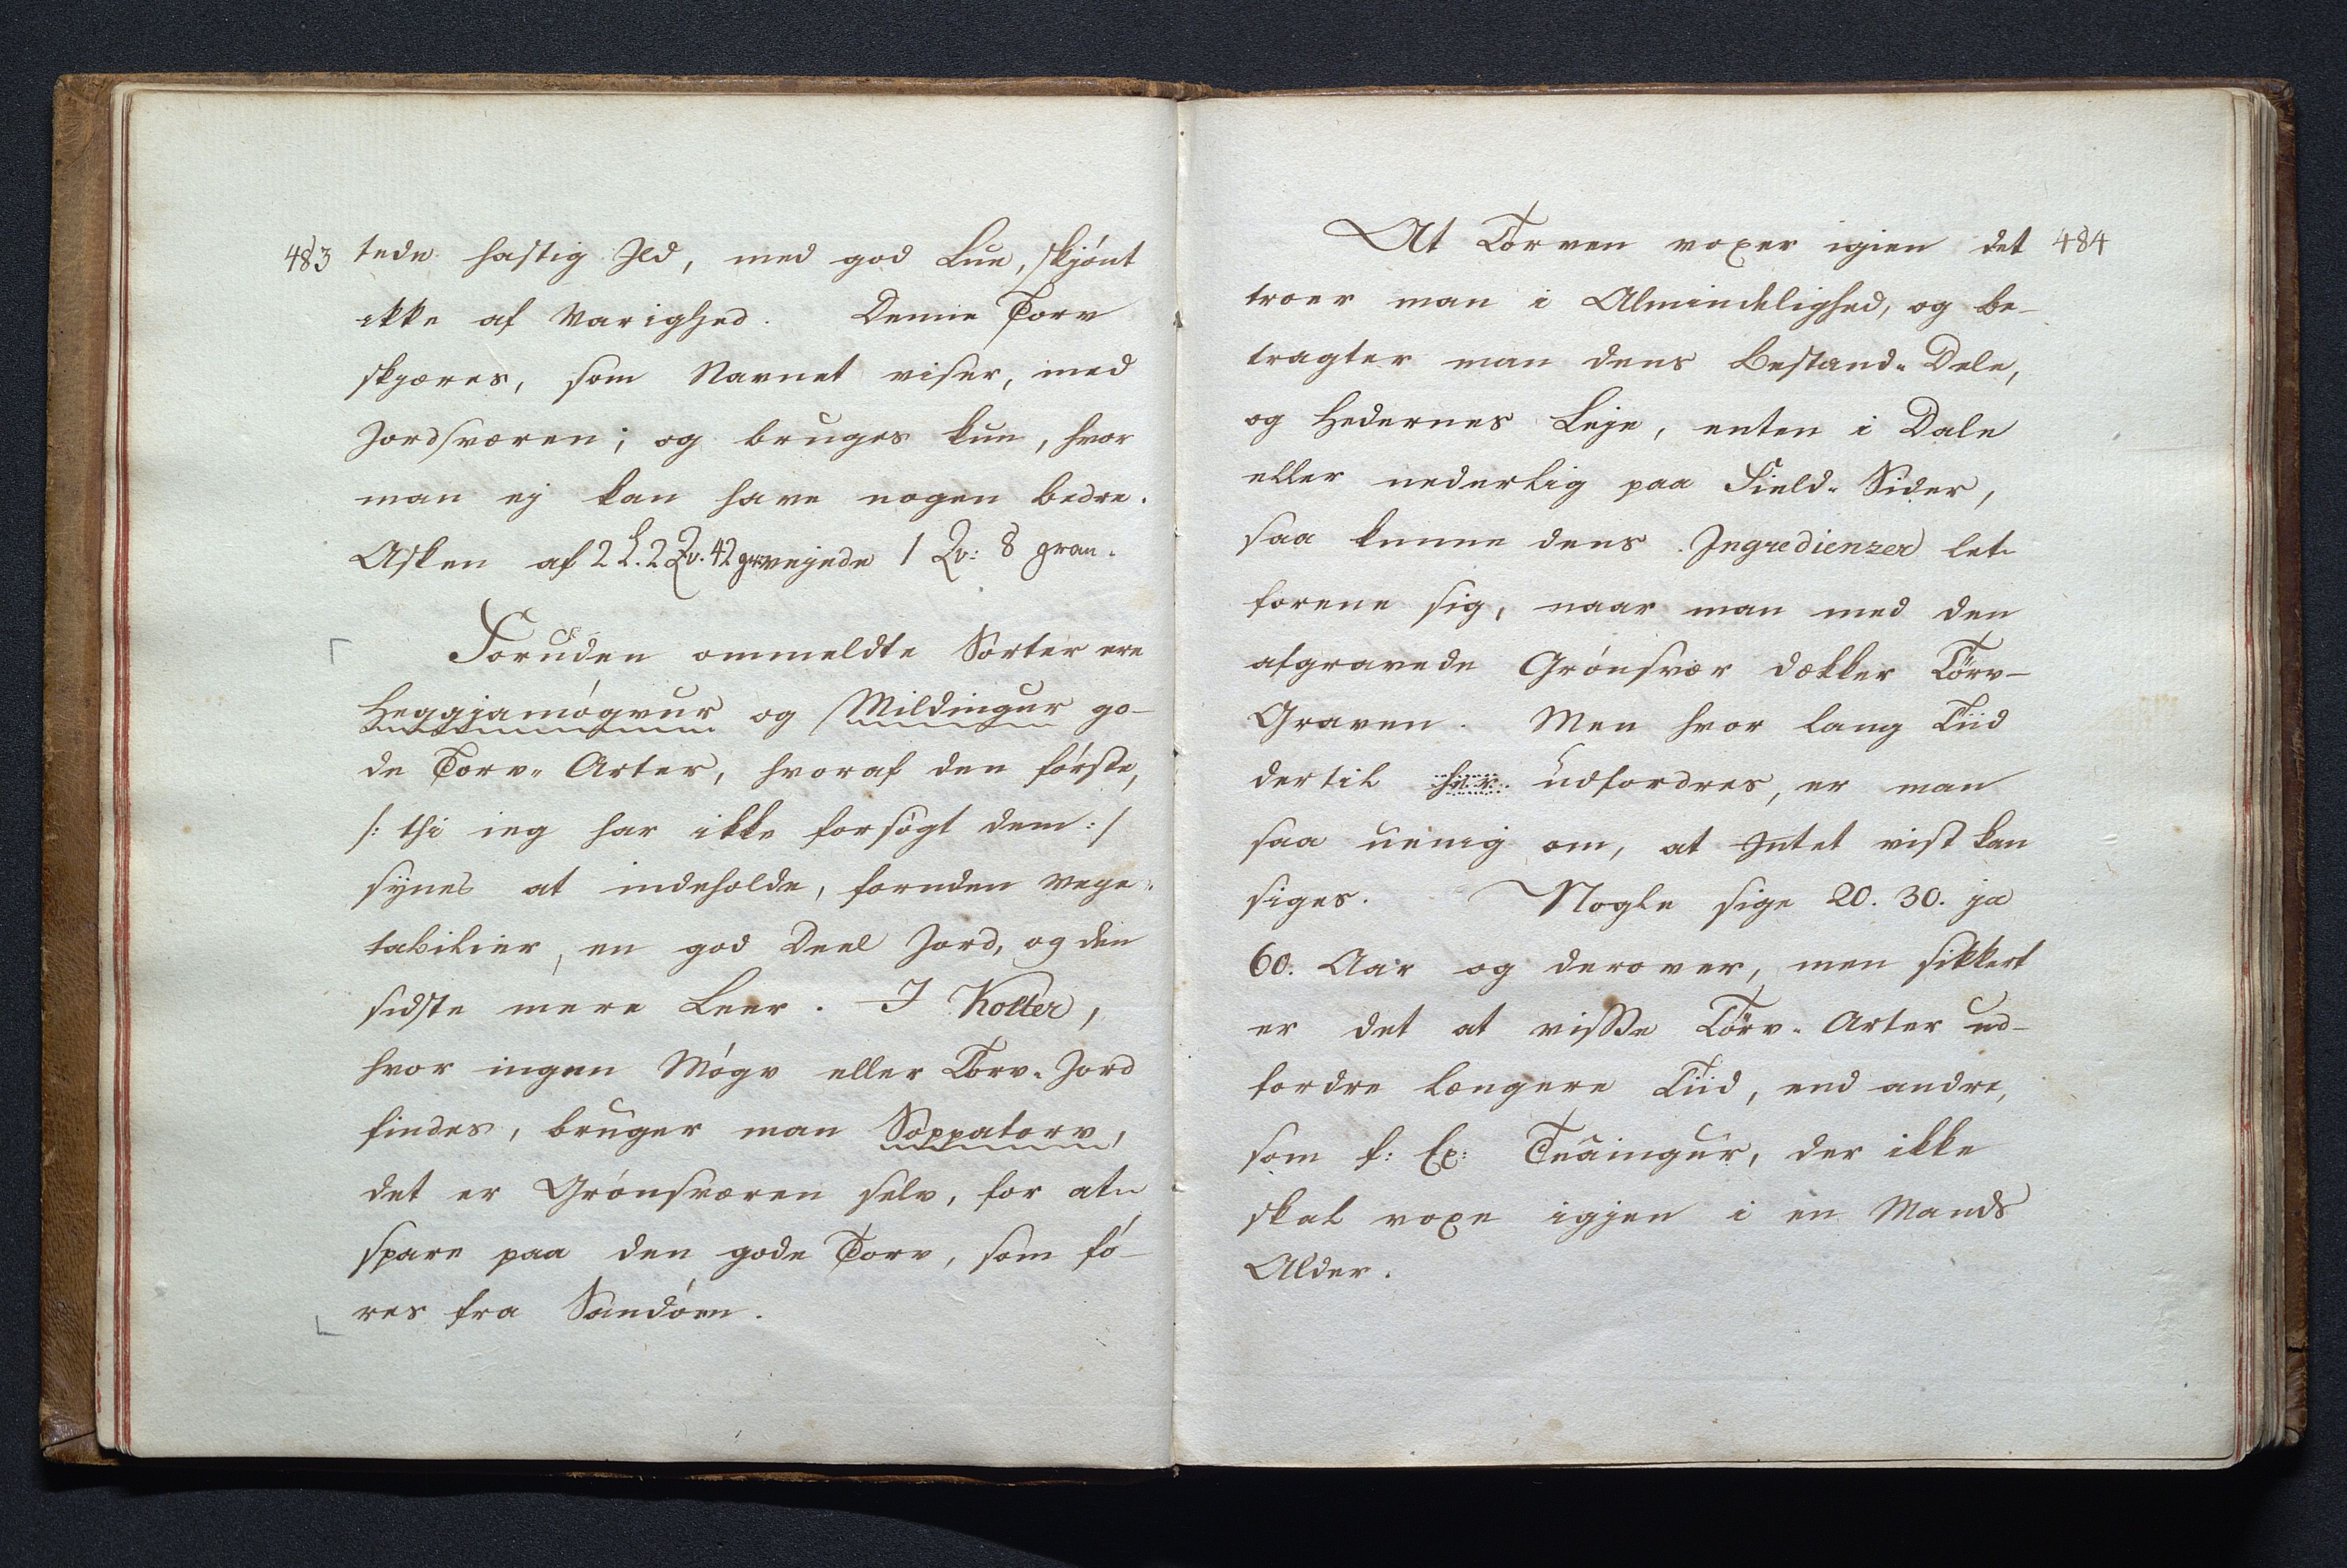 483 tede hastig Ild, med god Lue, skjönt
ikke af Varighed. Denne Torv
skjæres, som Navnet viser, med
Jordsværen; og bruges kun, hvor
man ej kan have nogen bedre.
Asken af 2 L. 2 Qv. 42 gr. vejede 1 Qv: 8 gran.
Foruden ommeldte Sorter ere
Heggjamógvur og Mildingur go-
de Torv-Arter, hvoraf den förste,
/: thi ieg har ikke forsögt dem :/
synes at indeholde, foruden vege-
tabilier, en god Deel Jord, og den
sidste mere Leer. I Kolter,
hvor ingen Mógv eller Torv-Jord
findes, bruger man Soppatorv,
det er Grönsværen selv, for at
spare paa den gode Torv, som fö-
res fra Sandöen.
At Torven voxer igien det 484
troer man i Almindelighed, og be-
tragter man dens Bestand-Dele,
og Hedernes Leje, enten i Dale
eller nederlig paa Field-Sider,
saa kunne dens Ingredienzer let
forene sig, naar man med den
afgravede Grönsvær dækker Törv-
Graven. Men hvor lang Tiid
dertil udfordres, er man
saa uenig om, at Intet vist kan
siges. Nogle sige 20. 30. ja
60. Aar og derover, men sikkert
er det at visse Törv-Arter ud-
fordre længere Tiid, end andre,
som f: Ex: Tuaingur, der ikke
skal voxe igjen i en Mands
Alder.